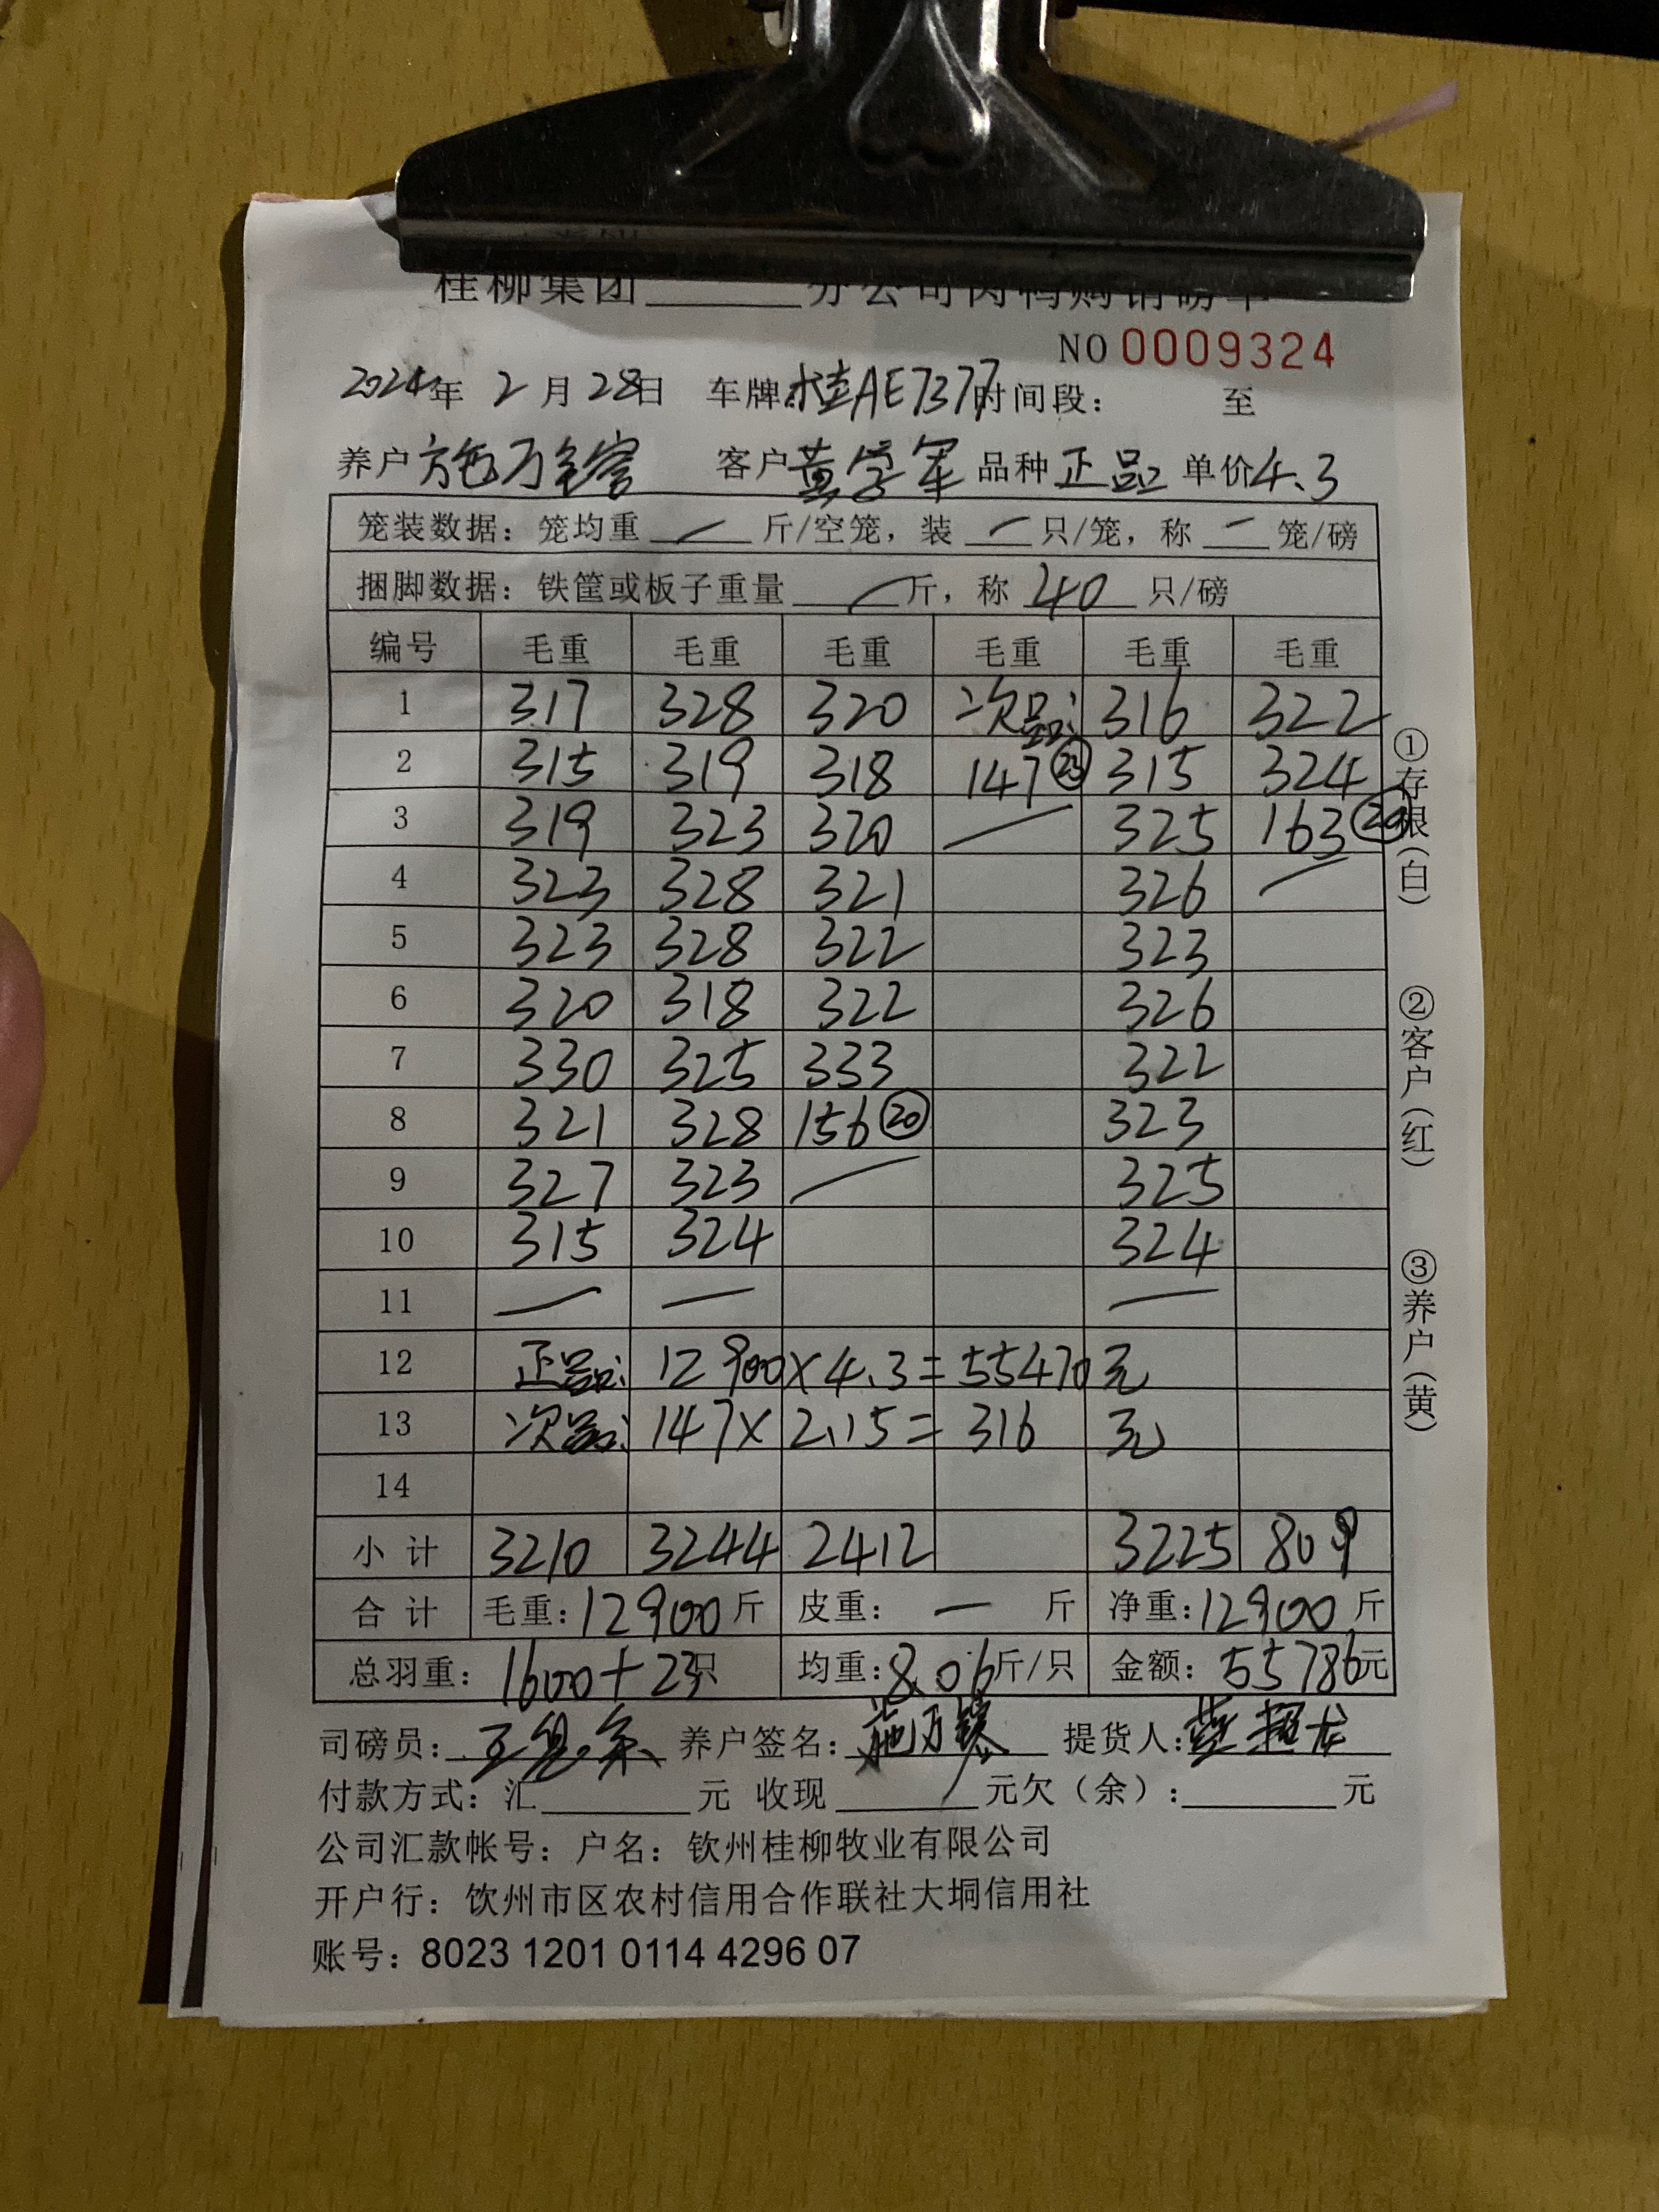 桂柳集团______分公司肉鸭购销磅单
NO 0009324
2024年 2月28日 车牌桂AE7377时间段: 至
养户施万 客户黄学军 品种正品 单价4.3
笼装数据: 笼均重 — 斤/空笼, 装 — 只/笼, 称 — 笼/磅
捆脚数据: 铁筐或板子重量 — 斤, 称 40 只/磅
编号 毛重 毛重 毛重 毛重 毛重 毛重
1 317 328 320 次品: 316 322
2 315 319 318 147㉓ 315 324
3 319 323 320 — 325 163⑳
4 323 328 321 326 —
5 323 328 322 323
6 320 318 322 326
7 330 325 333 322
8 321 328 156⑳ 323
9 327 323 — 325
10 315 324 324
11 — — —
12 正品: 12900×4.3=55470元
13 次品: 147×2.15=316 元
14
小计 3210 3244 2412 3225 809
合计 毛重:12900斤 皮重: — 斤 净重:12900斤
总羽重: 1600+23只 均重:8.06斤/只 金额: 55786元
司磅员: 养户签名:施万 提货人:
付款方式: 汇______元 收现______元欠(余):______元
公司汇款帐号: 户名: 钦州桂柳牧业有限公司
开户行: 钦州市区农村信用合作联社大垌信用社
账号: 8023 1201 0114 4296 07
①存根(白) ②客户(红) ③养户(黄)